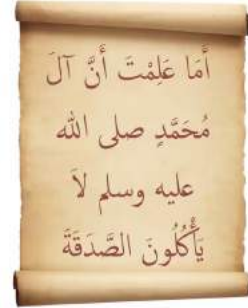 أَمَا عَلِمْتَ أَنَّ آلَ
مُحَمَّدٍ صلى الله
عليه وسلم لاَ
يَأْكُلُونَ الصَّدَقَةَ